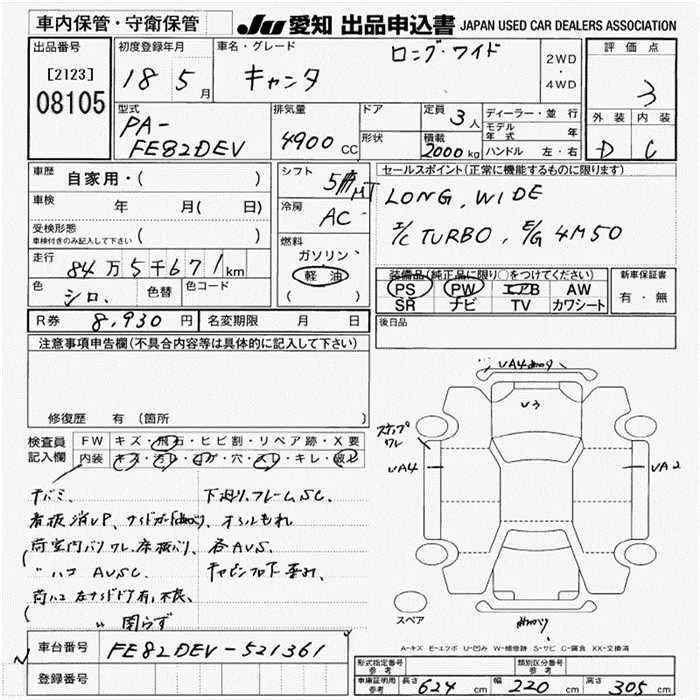 車内保管・守衛保管
JU 愛知 出品申込書 JAPAN USED CAR DEALERS ASSOCIATION
出品番号
[2123]
08105
初度登録年月
18 5月
車名・グレード
ロング・ワイド
キャンタ
2WD
・
4WD
評価点
3
外装 内装
D C
型式
PA-
FE82DEV
排気量
4900cc
ドア
形状
定員 3人
積載 2000kg
ディーラー・並行
モデル年式 年
ハンドル 左・右
車歴 自家用・( )
車検 年 月( 日)
受検形態
車検付きのみ記入して下さい ( )
走行 84万5千671km
色 シロ. 色替 色コード
シフト 5速MT
冷房 AC
燃料
ガソリン
軽油
( )
セールスポイント(正常に機能するものに限ります)
LONG, WIDE
I/C TURBO, E/G 4M50
装備品(純正品に限り○をつけてください)
PS PW エアB AW
SR ナビ TV カワシート
新車保証書
有・無
後日品
R券 8,930円 名変期限 月 日
注意事項申告欄(不具合内容等は具体的に記入して下さい)
修復歴 有(箇所 )
検査員記入欄
FW キズ・飛石・ヒビ割・リペア跡・X要
内装 キズ・汚レ・コゲ・穴・スレ・キレ・破レ
下廻り、フレームSC.
オイルもれ
各AUS.
ハコ AUSC.
開らず
UA4
U3
ステップ
ワレ
UA4
UA2
スペア
A-キズ E-エクボ U-凹み W-補修跡 S-サビ C-腐食 XX-交換済
車台番号 FE82DEV-521361
登録番号
形式指定番号 参考
類別区分番号 参考
車庫証明用 参考 長さ 624cm 幅 220cm 高さ 305cm